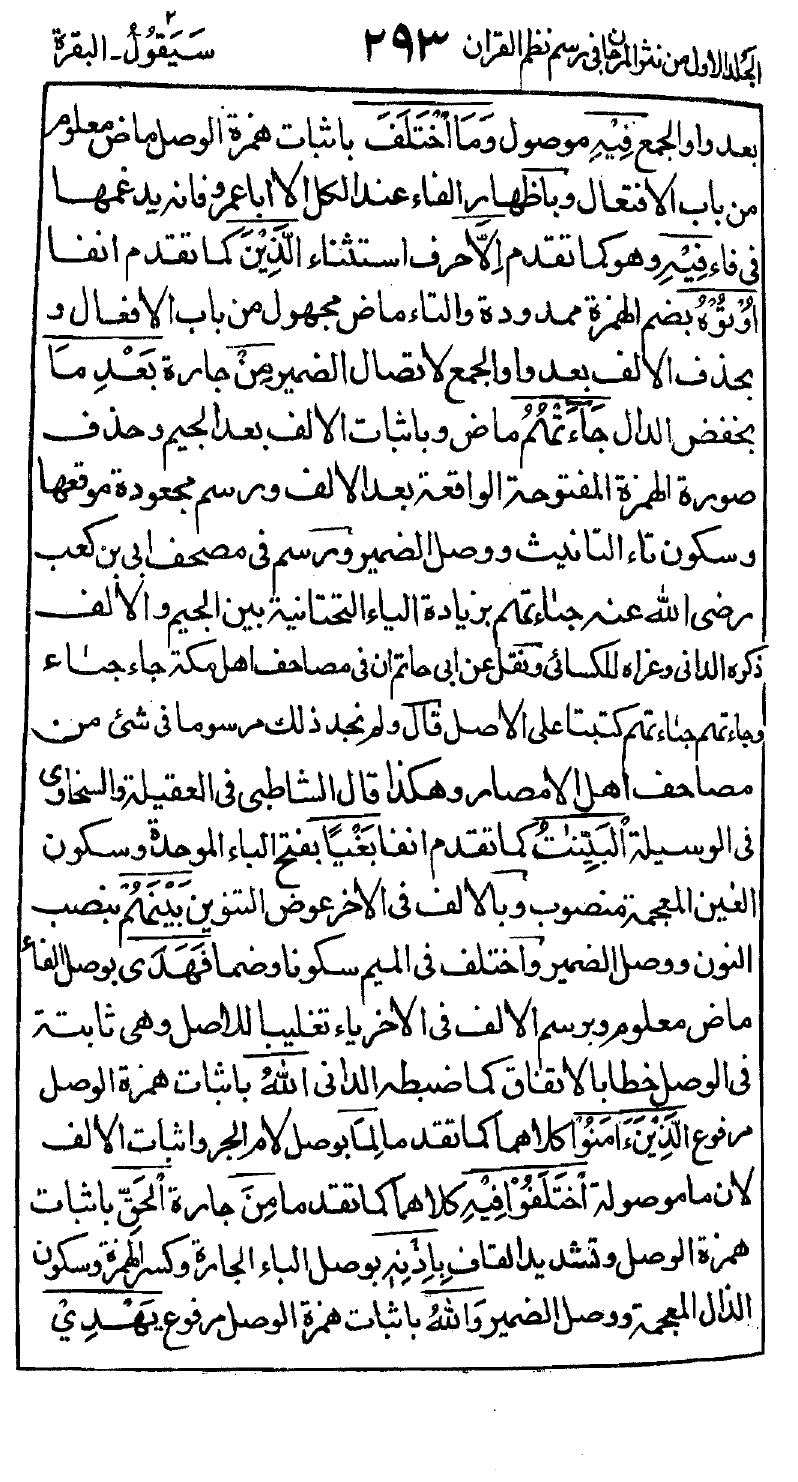 الجلد الاول من نثر المرجان فى رسم نظم القران ٢٩٣ سَيَقُولُ ٢ ـ البقرة
بعد واو الجمع فِيْهِ موصول وَمَا اخْتَلَفَ باثبات همزة الوصل ماض معلوم
من باب الافتعال وباظهار الفاء عند الكل الا ابا عمرو فانه يدغمها
فى فاء فِيْهِ وهو كما تقدم اِلَّا حرف استثناء الَّذِيْنَ كما تقدم انفا
اُوْتُوْهُ بضم الهمزة ممدودة والتاء ماض مجهول من باب الافعال و
بحذف الالف بعد واو الجمع لاتصال الضمير مِنْ جارة بَعْدِ مَا
بخفض الدال جَآءَتْهُمُ ماض وباثبات الالف بعد الجيم وحذف
صورة الهمزة المفتوحة الواقعة بعد الالف وبرسم مجعودة موقعها
وسكون تاء التانيث ووصل الضمير ورسم فى مصحف ابى بن كعب
رضى الله عنه جياءتهم بزيادة الياء التحتانية بين الجيم والالف
ذكره الدانى وعزاه للكسائى ونقل عن ابى حاتم ان فى مصاحف اهل مكة جاء جياء
وجاءتهم جياءتهم كتبتا على الاصل قال ولم نجد ذلك مرسوما فى شئ من
مصاحف اهل الامصار وهكذا قال الشاطبى فى العقيلة والسخاوى
فى الوسيلة الْبَيِّنٰتُ كما تقدم انفا بَغْيًا بفتح الباء الموحدة وسكون
الغين المعجمة منصوب وبالالف فى الاخر عوض التنوين بَيْنَهُمْ بنصب
النون ووصل الضمير واختلف فى الميم سكونا وضما فَهَدَى بوصل الفاء
ماض معلوم وبرسم الالف فى الاخر ياء تغليبا للاصل وهى ثابتة
فى الوصل خطا بالاتفاق كما ضبطه الدانى اللهُ باثبات همزة الوصل
مرفوع الَّذِيْنَ ءَامَنُوْا كلاهما كما تقدما لِمَا بوصل لام الجر واثبات الالف
لان ما موصولة اخْتَلَفُوْا فِيْهِ كلاهما كما تقدما مِنَ جارة الْحَقِّ باثبات
همزة الوصل وتشديد القاف بِاِذْنِهٖ بوصل الباء الجارة وكسر الهمزة وسكون
الذال المعجمة ووصل الضمير وَاللهُ باثبات همزة الوصل مرفوع يَهْدِيْ